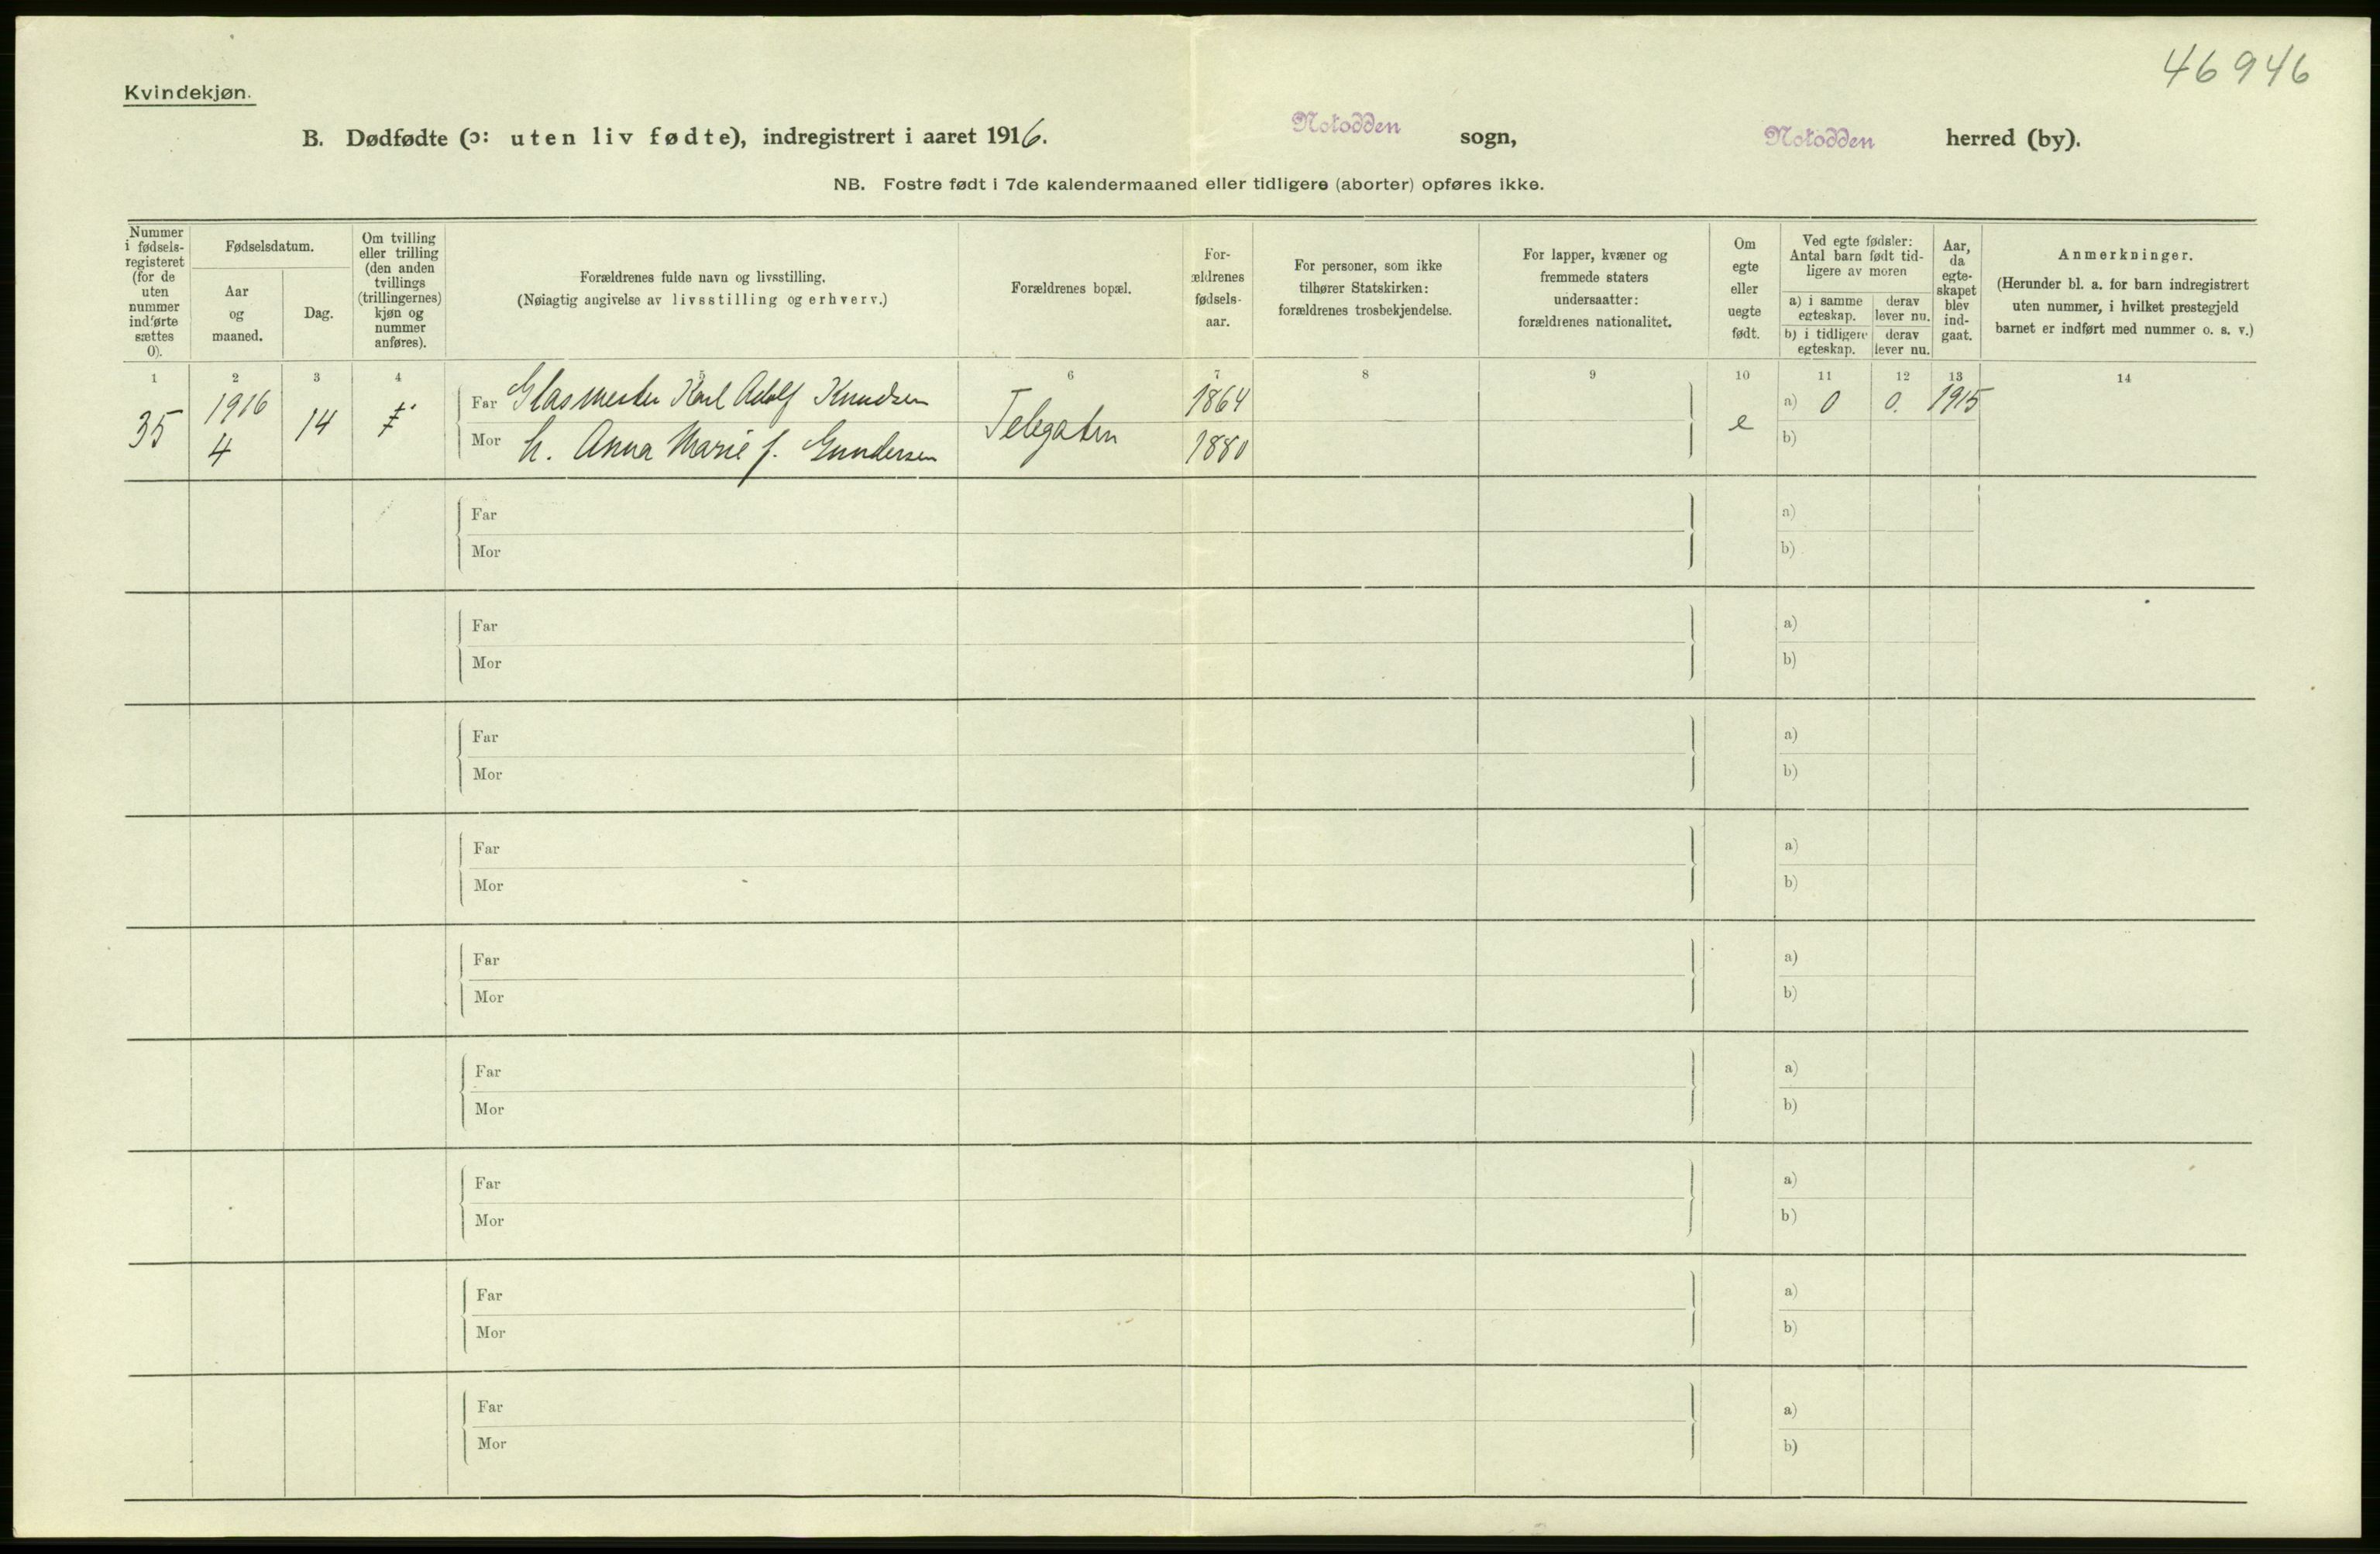 46946
Kvindekjøn.
B. Dødfødte (ɔ: uten liv fødte), indregistrert i aaret 1916. Notodden sogn, Notodden herred (by).
NB. Fostre født i 7de kalendermaaned eller tidligere (aborter) opføres ikke.
Nummer
i fødsels-
registeret
(for de
uten
nummer
indførte
sættes
0).
Fødselsdatum.
Aar
og
maaned.
Dag.
Om tvilling
eller trilling
(den anden
tvillings
(trillingernes)
kjøn og
nummer
anføres).
Forældrenes fulde navn og livsstilling.
(Nøiagtig angivelse av livsstilling og erhverv.)
Forældrenes bopæl.
For-
ældrenes
fødsels-
aar.
For personer, som ikke
tilhører Statskirken:
forældrenes trosbekjendelse.
For lapper, kvæner og
fremmede staters
undersaatter:
forældrenes nationalitet.
Om
egte
eller
uegte
født.
Ved egte fødsler:
Antal barn født tid-
ligere av moren
a) i samme
egteskap.
derav
lever nu.
b) i tidligere
egteskap.
derav
lever nu.
Aar,
da
egte-
skapet
blev
ind-
gaat.
Anmerkninger.
(Herunder bl. a. for barn indregistrert
uten nummer, i hvilket prestegjeld
barnet er indført med nummer o. s. v.)
1 2 3 4 5 6 7 8 9 10 11 12 13 14
35 1916 14 Far Glasmester Karl Adolf Knudsen 1864 e a) 0 0. 1915
4 Mor h. Anna Marie f. Gundersen Telegaten 1880 b)
Far a)
Mor b)
Far a)
Mor b)
Far a)
Mor b)
Far a)
Mor b)
Far a)
Mor b)
Far a)
Mor b)
Far a)
Mor b)
Far a)
Mor b)
Far a)
Mor b)